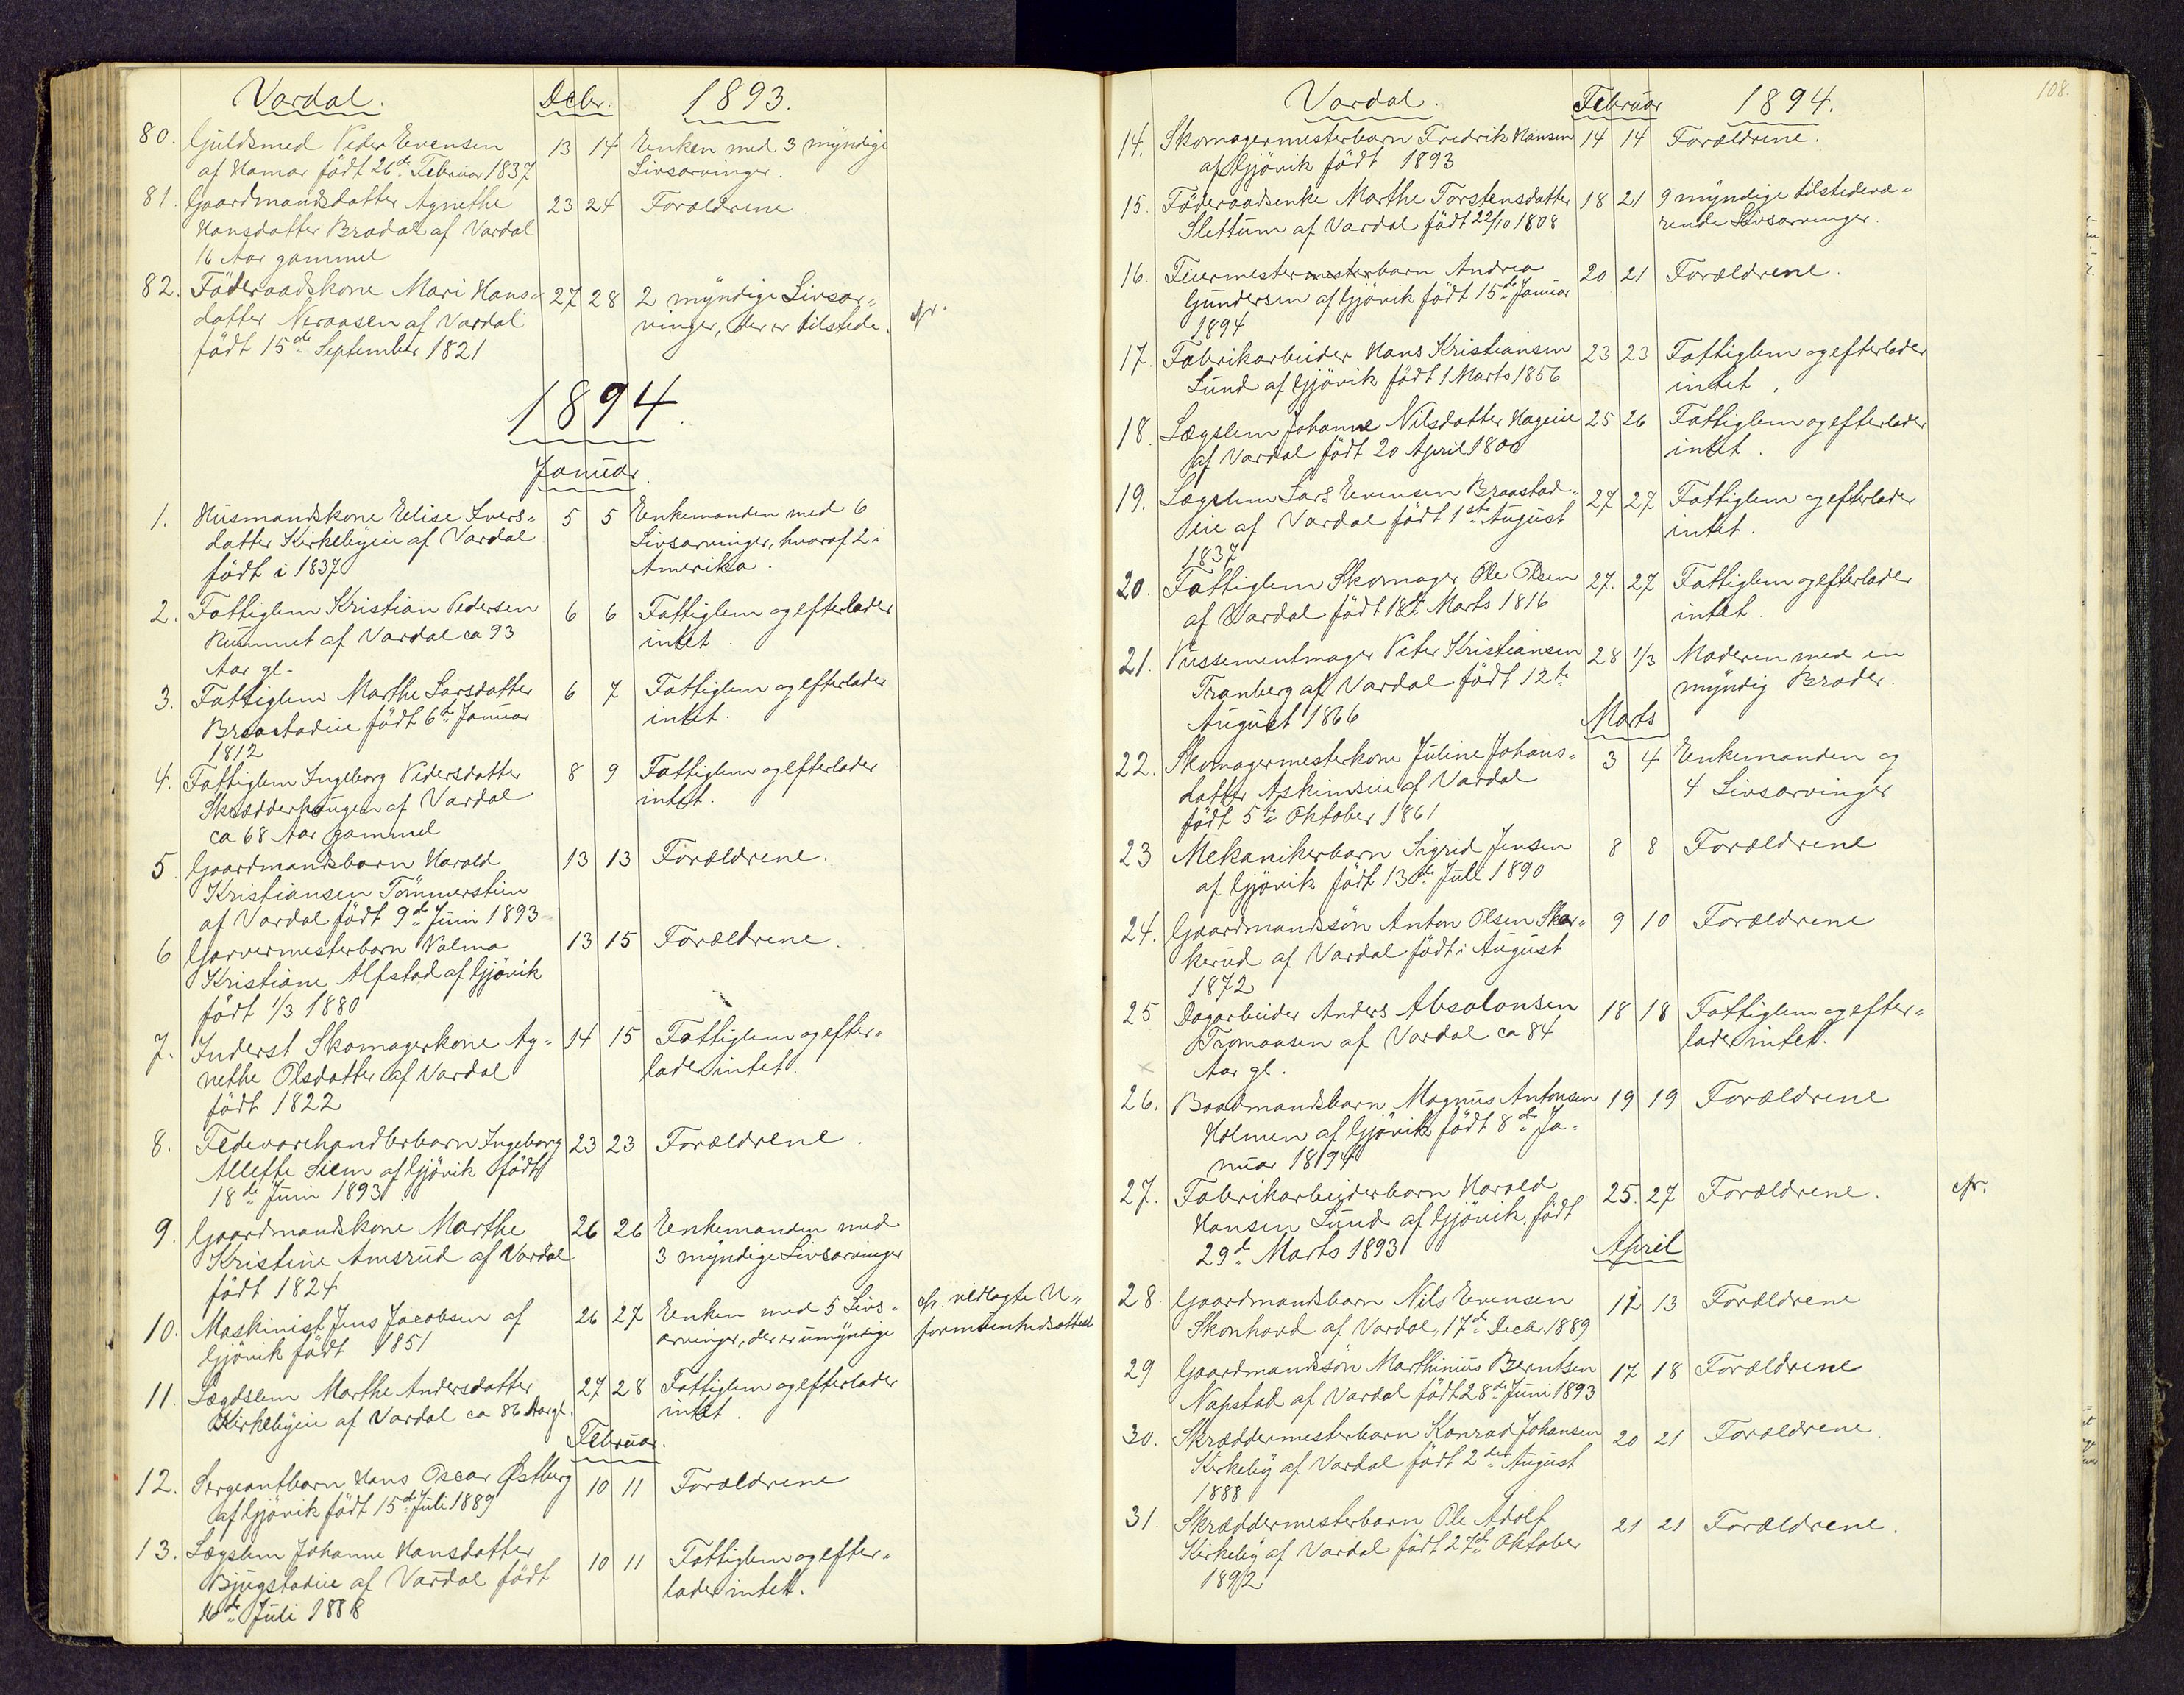 Vardal. Decbr. 1893.
80. Guldsmed Peder Evensen 13 14 Enken med 3 myndige
af Hamar födt 26de Februar 1837 Livsarvinger.
81. Gaardmandsdatter Agnethe 23 24 Forældrene.
Hansdatter Bradal af Vardal
16 Aar gammel
82. Föderaadskone Mari Hans- 27 28 2 myndige Livsar-
datter Neraasen af Vardal vinger, der er tilstede.
födt 15de September 1821
1894.
Januar.
1. Husmandskone Elise Ivers- 5 5 Enkemanden med 6
datter Kirkebyeie af Vardal Livsarvinger, hvoraf 2 i
födt i 1837 Amerika.
2. Fattiglem Kristian Pedersen 6 6 Fattiglem og efterlader
af Vardal ca 93 intet.
Aar gl.
3. Fattiglem Marthe Larsdatter 6 7 Fattiglem og efterlader
Braastadeie födt 6te Januar intet.
1812
4. Fattiglem Ingeborg Pedersdatter 8 9 Fattiglem og efterlader
Skrædderhaugen af Vardal intet.
ca 68 Aar gammel
5 Gaardmandsbarn Harald 13 13 Forældrene.
Kristiansen Tömmerstien
af Vardal födt 9de Juni 1893
6 Garvermesterbarn Valma 13 15 Forældrene.
Kristiane Alfstad af Gjövik
födt 1/3 1880
7. Inderst Skomagerkone Ag- 14 15 Fattiglem og efter-
nethe Olsdatter af Vardal lader intet.
födt 1822
8. Fedevarehandlerbarn Ingeborg 23 23 Forældrene.
Alette Siem af Gjövik födt
18de Juni 1893
9. Gaardmandskone Marthe 26 26 Enkemanden med
Kristine Amsrud af Vardal 3 myndige Livsarvinger
födt 1824
10. Maskinist Jens Jacobsen af 26 27 Enken med 5 Livs- cfr. vedlagte U-
Gjövik födt 1851 arvinger, der er umyndige formuenhedsattest
11. Lægdslem Marthe Andersdatter 27 28 Fattiglem og efterlader
Kirkebyeie af Vardal ca 86 Aar gl. intet.
Februar.
12. Sergeantbarn Hans Oscar Østberg 10 11 Forældrene
af Gjövik födt 15de Juli 1889
13. Lægslem Johanne Hansdatter 10 11 Fattiglem og efter-
Bjugstadeie af Vardal födt lader intet.
16de Juli 1818
108.
Vardal. Februar 1894.
14. Skomagermesterbarn Fredrik Hansen 14 14 Forældrene.
af Gjövik födt 1893
15. Föderaadsenke Marthe Torstensdatter 18 21 9 myndige tilstedevæ-
Slettum af Vardal födt 22/10 1808 rende Livsarvinger.
16. Feiermestermesterbarn Andrea 20 21 Forældrene.
Gundersen af Gjövik födt 15de Januar
1894
17. Fabrikarbeider Hans Kristiansen 23 23 Fattiglem og efterlader
Lund af Gjövik födt 1 Marts 1856 intet.
18. Lægslem Johanne Nilsdatter Hageeie 25 26 Fattiglem og efterlader
af Vardal födt 20 April 1800 intet.
19. Lægslem Lars Evensen Braastad- 27 27 Fattiglem og efterlader
eie af Vardal födt 1ste August intet.
1837
20. Fattiglem Skomager Ole Olsen 27. 27 Fattiglem og efterlader
af Vardal födt 18de Marts 1816 intet.
21. Pussementmager Peter Kristiansen 28 1/3 Moderen med en
Tranberg af Vardal födt 12te myndig Broder.
August 1866
Marts
22. Skomagermesterkone Juline Johans- 3 4 Enkemanden og
datter Askimseie af Vardal 4 Livsarvinger
födt 5te Oktober 1861
23 Mekanikerbarn Sigrid Jensen 8 8 Forældrene
af Gjövik födt 13de Juli 1890
24. Gaardmandssön Anton Olsen Skar- 9 10 Forældrene
kerud af Vardal födt i August
1872
25 Dagarbeider Anders Absalonsen 18 18 Fattiglem og efter-
Tromaasen af Vardal ca 84 lader intet.
Aar gl.
26. Baadmandsbarn Magnus Antonsen 19 19 Forældrene
Holmen af Gjövik födt 8de Ja-
nuar 1894
27. Fabrikarbeiderbarn Harald 25. 27 Forældrene. cfr.
Hansen Lund af Gjövik födt
29de Marts 1893
April
28 Gaardmandsbarn Nils Evensen 12 13 Forældrene
Skonhovd af Vardal, 17de Decbr. 1889
29 Gaardmandssön Marthinius Berntsen 17 18 Forældrene
Napstad af Vardal födt 28de Juni 1893
30. Skræddermesterbarn Konrad Johansen 20 21 Forældrene.
Kirkeby af Vardal födt 2den August
1888
31. Skræddermesterbarn Ole Adolf 21 21 Forældrene.
Kirkeby af Vardal födt 27de Oktober
1892